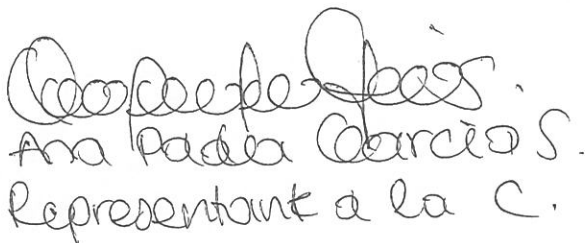 Ana Paola García S.
Representante a la C.